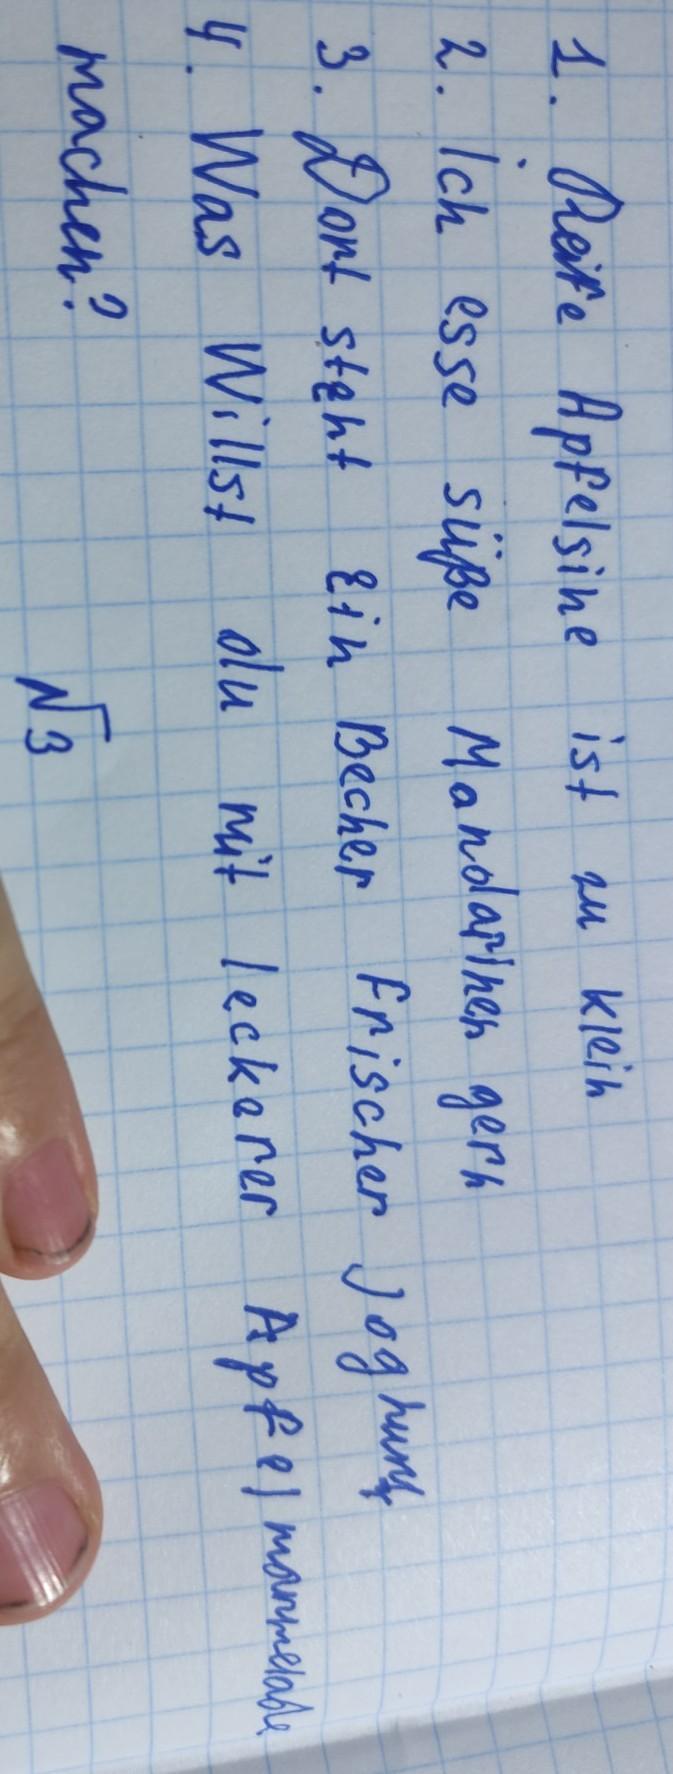 1. Reife Apfelsine ist zu klein
2. ich esse süße Mandarinen gern
3. Dort steht ein Becher frischer Joghurt
4. Was Willst du mit leckerer Apfelmarmelade
machen?
√3